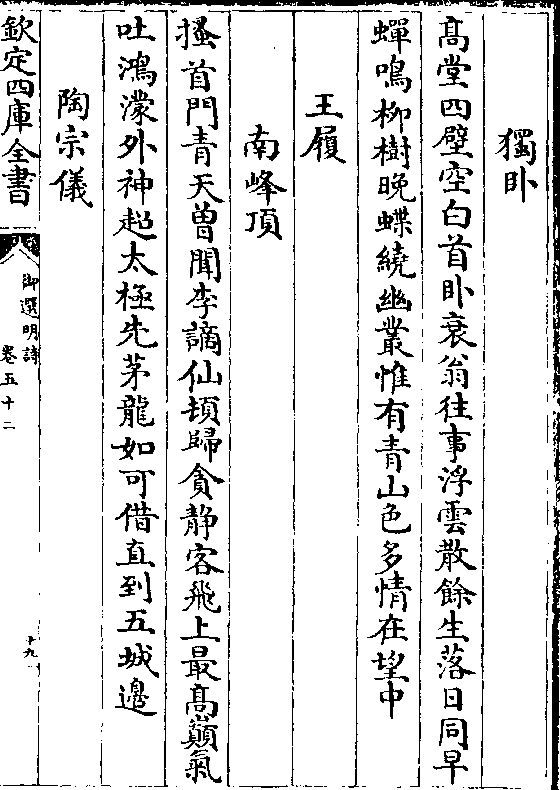 獨卧
高堂四壁空白首卧衰翁往事浮雲散餘生落日同早
蟬鳴柳樹晚蝶繞幽叢惟有青山色多情在望中
王履
南峰頂
搔首門青天曽聞李謫仙頓歸貪静客飛上最高巔氣
吐鴻濛外神超太極先茅龍如可借直到五城邊
陶宗儀
欽定四庫全書
御選明詩
卷五十二
十九